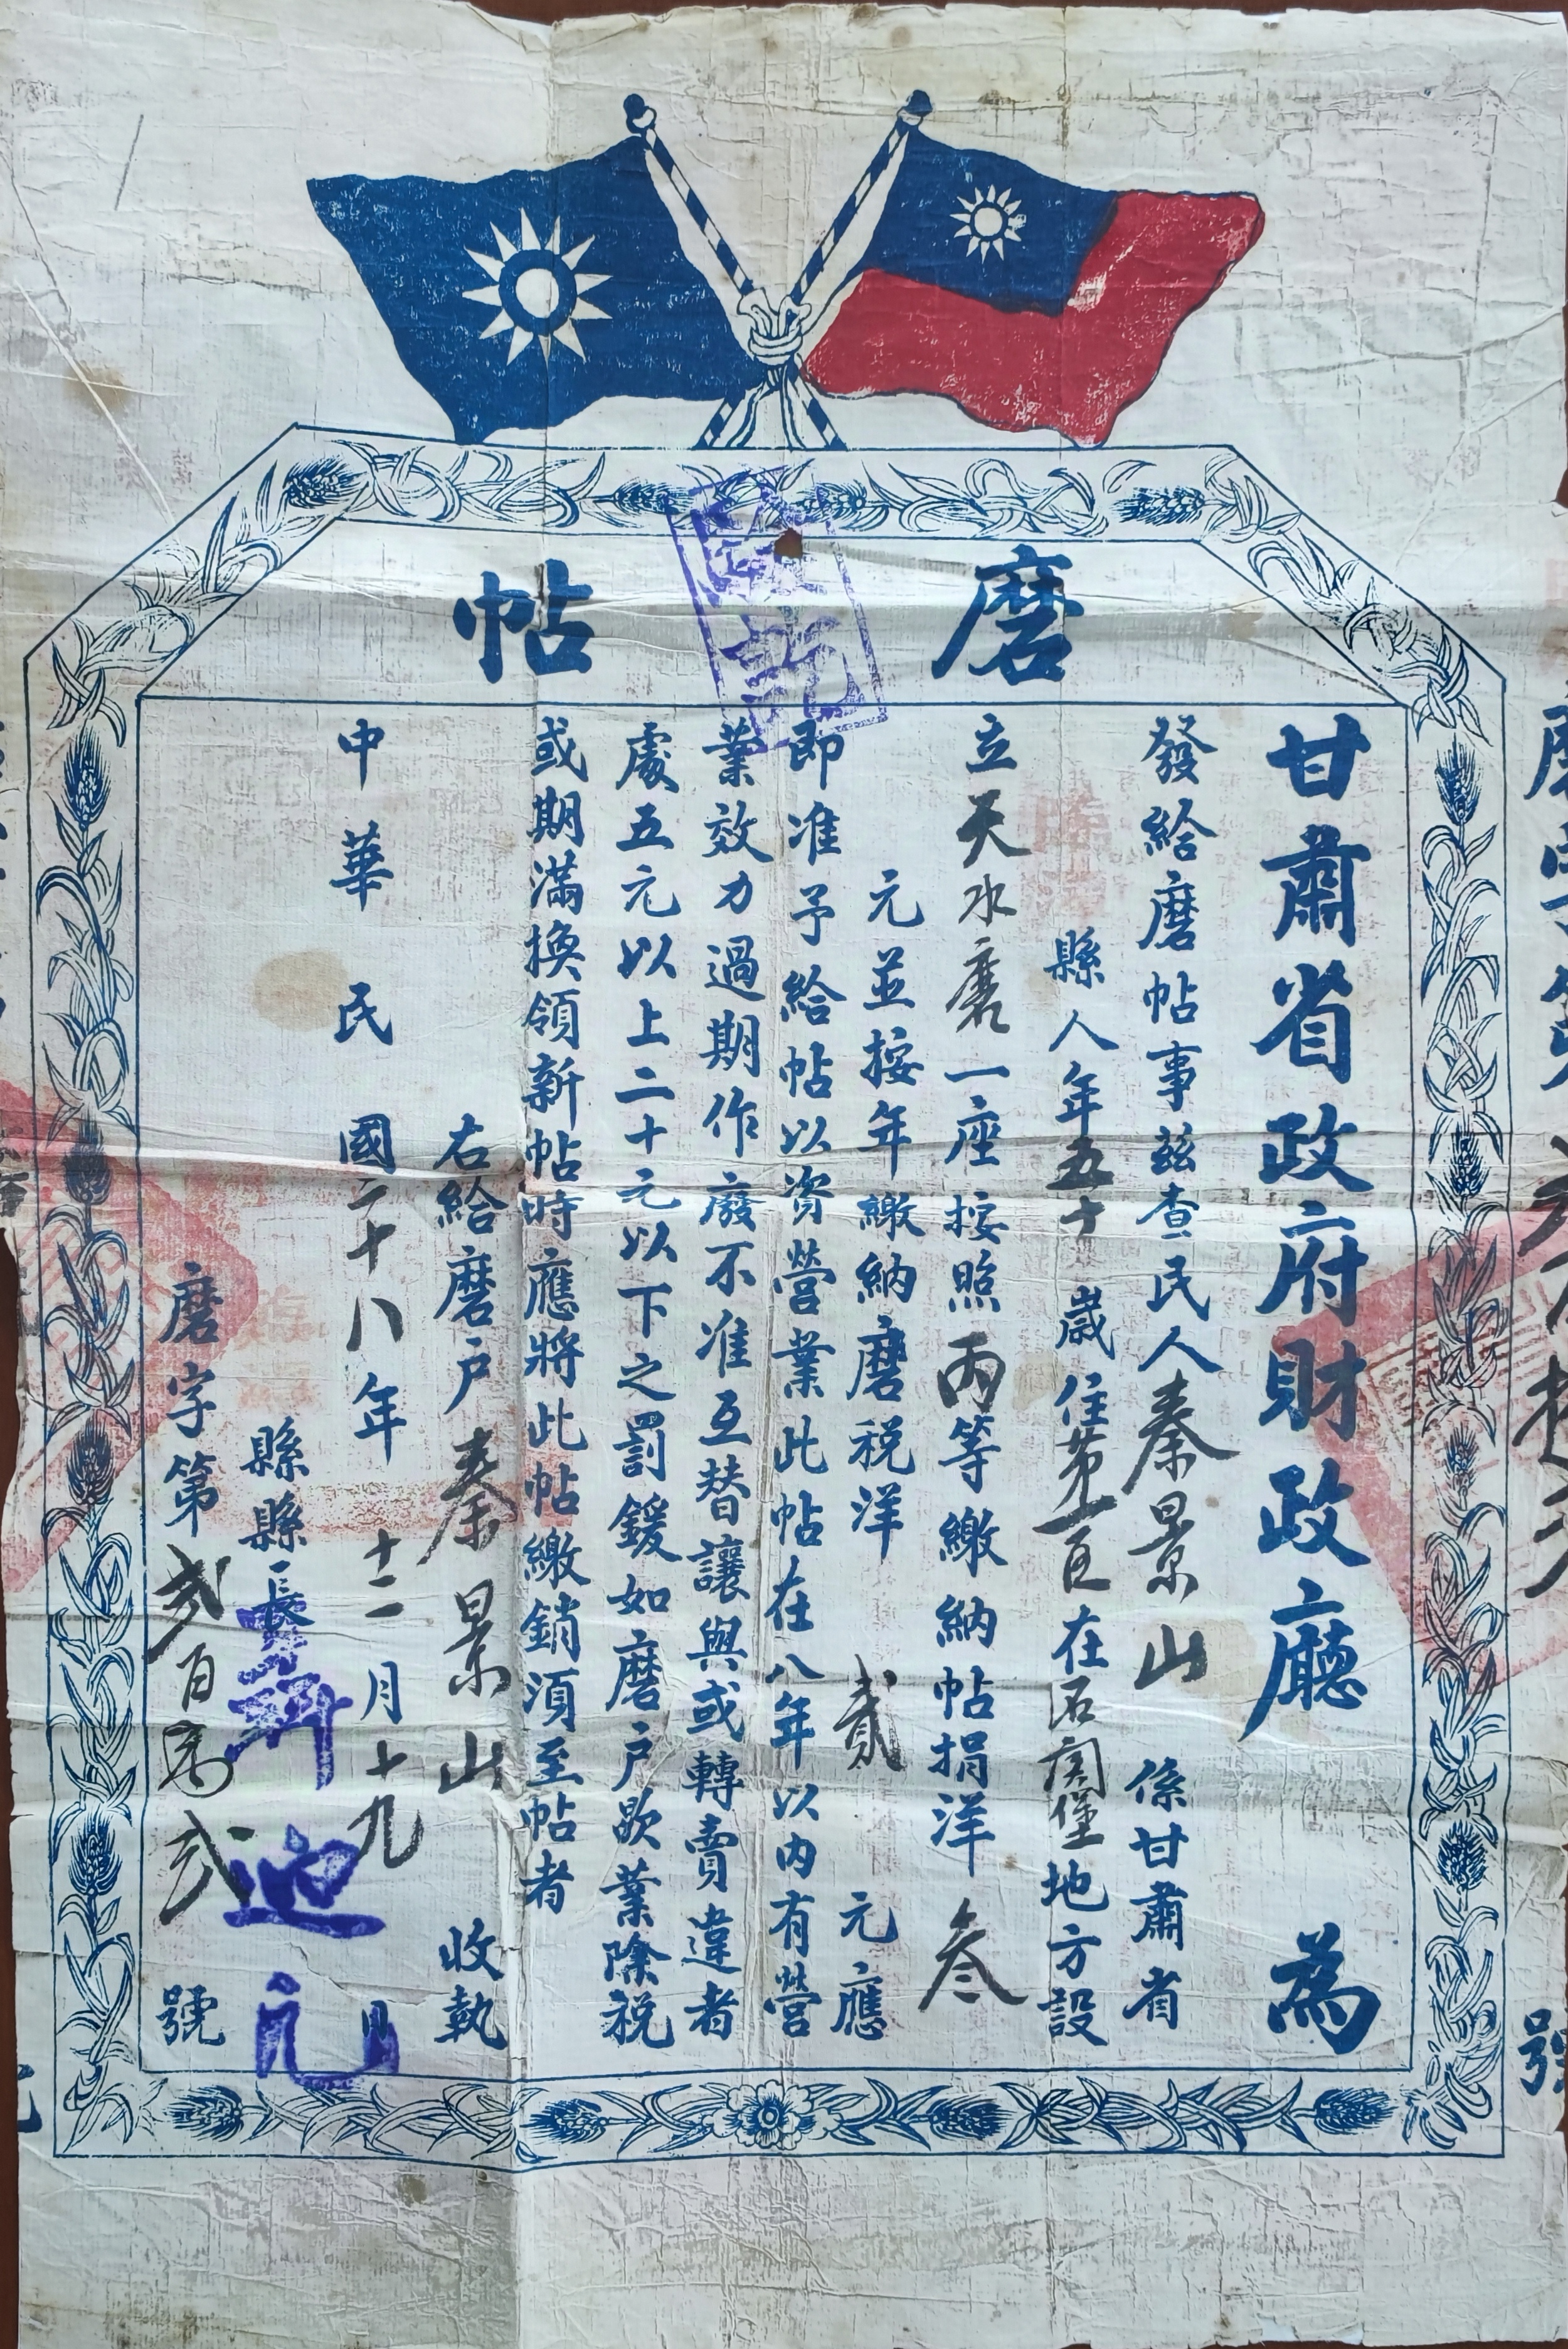 磨帖
甘肅省政府財政廳為
發給磨帖事茲查民人秦景山係甘肅省
縣人年五十歲住第一區在石家堡地方設
立天水磨一座按照丙等繳納帖捐洋叁
元並按年繳納磨稅洋貳元應
即准予給帖以資營業此帖在八年以內有營
業效力過期作廢不准互替讓與或轉賣違者
處五元以上二十元以下之罰鍰如磨戶歇業除稅
或期滿換領新帖時應將此帖繳銷須至帖者
右給磨戶秦景山收執
中華民國二十八年十二月十九日
縣縣長
磨字第弍百弍號